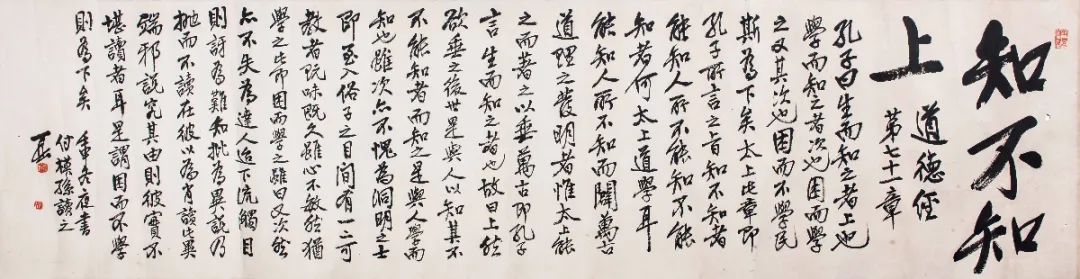 知不知
上
道德經
第七十一章
孔子曰生而知之者上也
學而知之者次也困而學
之又其次也困而不學民
斯為下矣太上此章即
孔子所言之旨知不知者
能知人所不能知不能
知者何太上道學耳
能知人所不知而闢萬古
道理之發明者惟太上能
之而著之以垂萬古即孔子
言生而知之者也故曰上然
欲垂之後世是與人以知其不
不能知者而知之是與人學而
知也雖次亦不愧為洞明之士
即至入俗子之目間有一二可
教者玩味既久雖心不敏然猶
學之此即困而學之雖曰又次然
亦不失為達人迨下流觸目
則訝為難知批為異説乃
抛而不讀在彼以為有談此異
端邪説究其由則彼實不
堪讀者耳是謂困而不學
則為下矣
冬夜書
付祺孫讀之